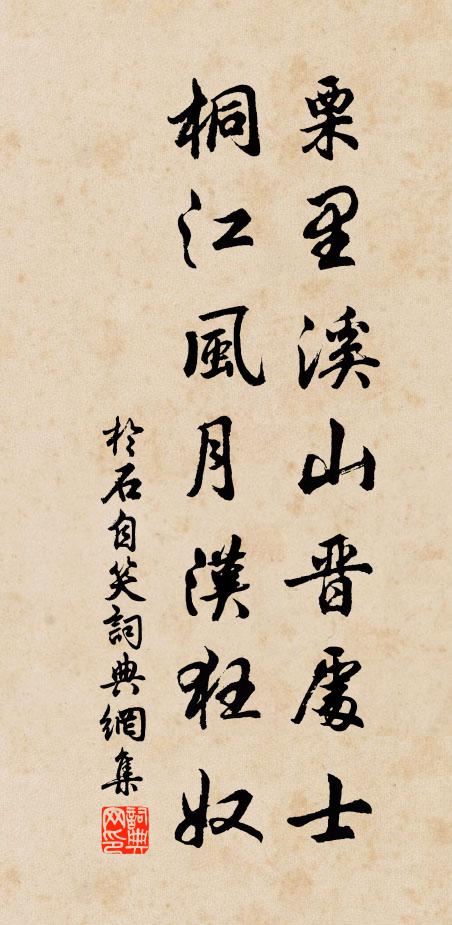 栗里溪山晋處士
桐江風月漢狂奴
於石自笑詞典網集
詞典網印